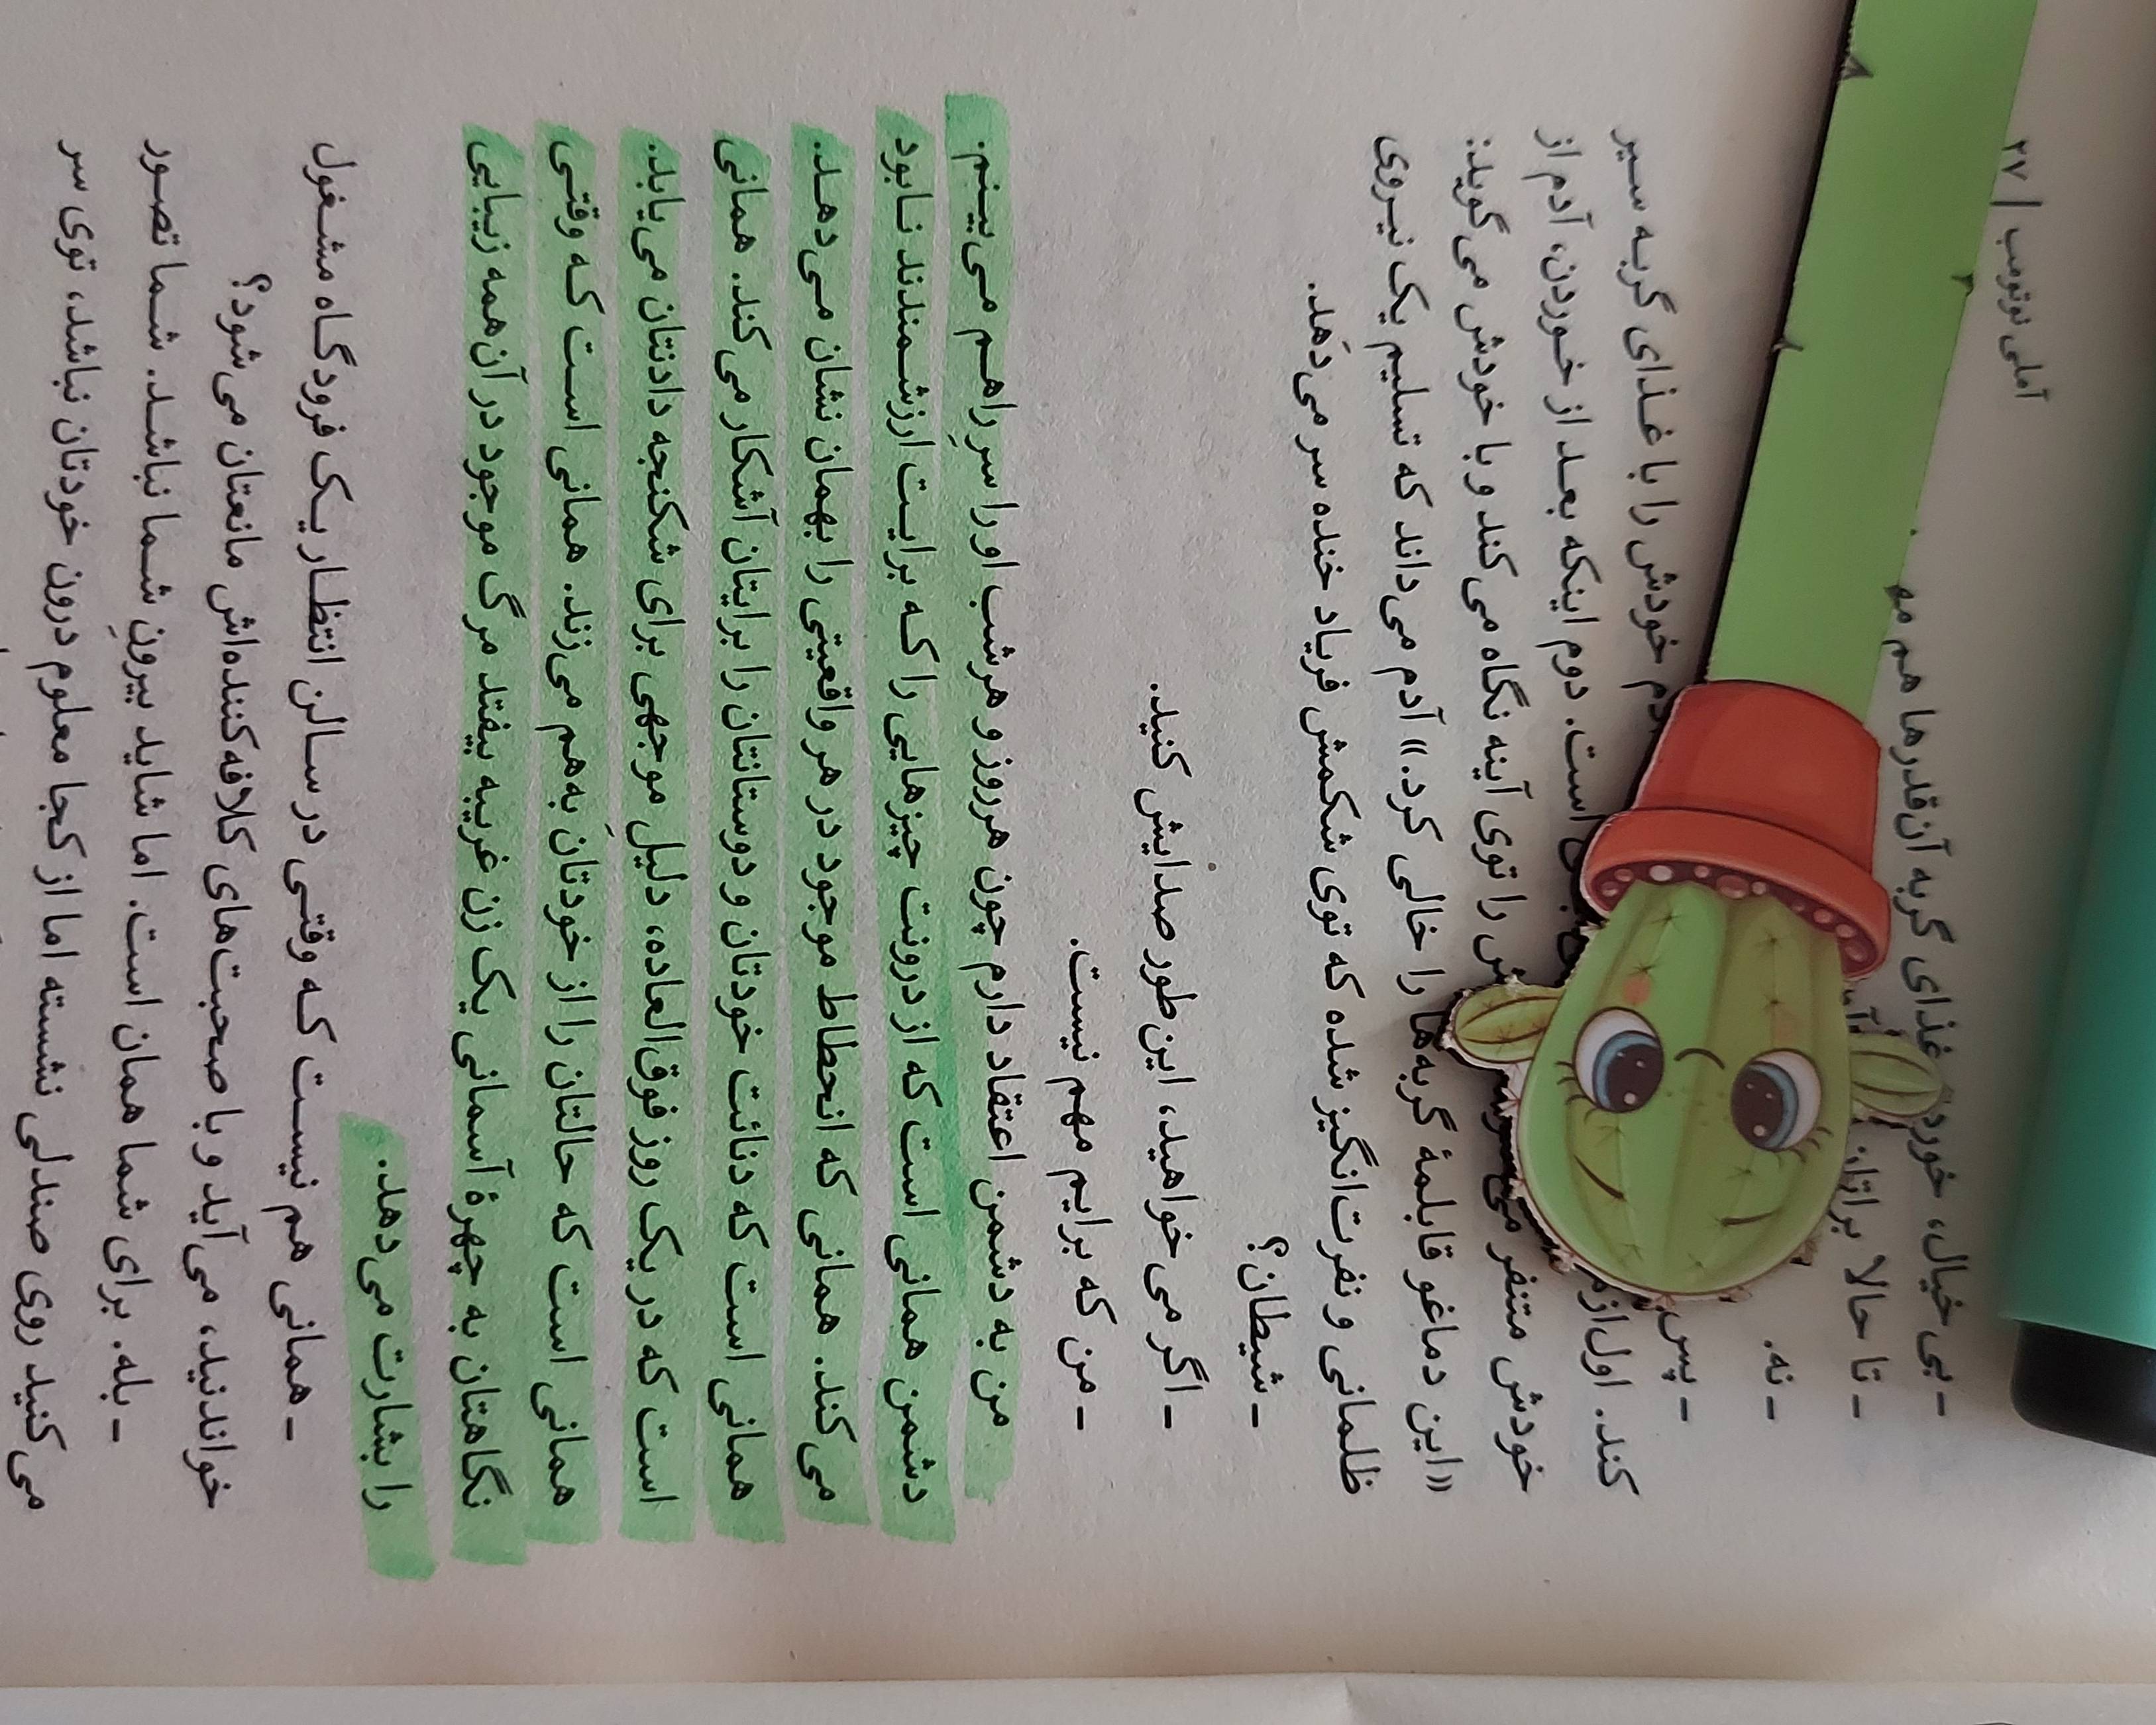 آملی نوتومب | ۲۷
- بی‌خیال، خوردن غذای گربه آن‌قدرها هم
- تا حالا براتان
- نه.
- پس دم خودش را با غذای گربه سیر
کند. اول از است. دوم اینکه بعد از خوردن، آدم از
خودش متنفر می را توی آینه نگاه می‌کند و با خودش می‌گوید:
«این دماغو قابلمهٔ گربه‌ها را خالی کرد.» آدم می‌داند که تسلیم یک نیروی
ظلمانی و نفرت‌انگیز شده که توی شکمش فریاد خنده سر می‌دَهد.
- شیطان؟
- اگر می‌خواهید، این‌طور صدایش کنید.
- من که برایم مهم نیست.
من به دشمن اعتقاد دارم چون هر روز و هر شب او را سرِ راهم می‌بینم.
دشمن همانی است که از درونت چیزهایی را که برایت ارزشمندند نابود
می‌کند. همانی که انحطاط موجود در هر واقعیتی را بهمان نشان می‌دهد.
همانی است که دنائت خودتان و دوستانتان را برایتان آشکار می‌کند. همانی
است که در یک روز فوق‌العاده، دلیل موجهی برای شکنجه دادنتان می‌یابد.
همانی است که حالتان را از خودتان به‌هم می‌زند. همانی است که وقتی
نگاهتان به چهرهٔ آسمانی یک زن غریبه بیفتد مرگ موجود در آن همه زیبایی
را بشارت می‌دهد.
- همانی هم نیست که وقتی در سالن انتظار یک فرودگاه مشغول
خواندنید، می‌آید و با صحبت‌های کلافه‌کننده‌اش مانعتان می‌شود؟
- بله. برای شما همان است. اما شاید بیرونِ شما نباشد. شما تصور
می‌کنید روی صندلی نشسته اما از کجا معلوم درون خودتان نباشد، توی سر